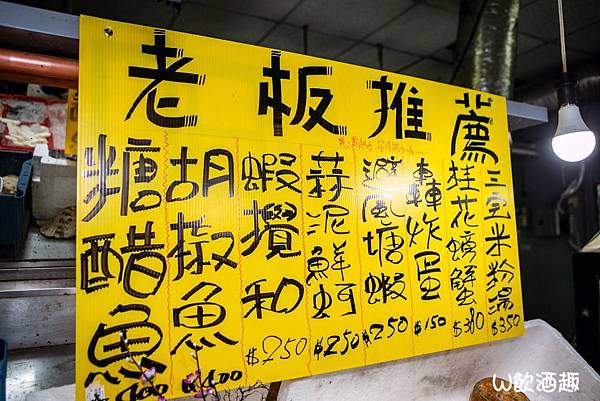 老板推薦
糖醋魚
400
胡椒魚
400
蝦攪和
$250
蒜泥鮮蚵
$250
避風塘蝦
$250
轟炸蛋
$150
桂花螃蟹
$380
三毫米粉湯
$350
W飲酒趣